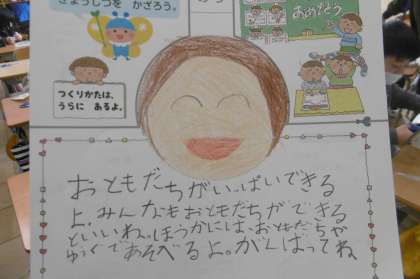 きょうしつを かざろう。
おめでとう
つくりかたは、
うらに あるよ。
おともだちがいっぱいできる
よ。みんなもおともだちができる
といいね。ほうかには、おともだちや
ゆうぐであそべるよ。がんばってね